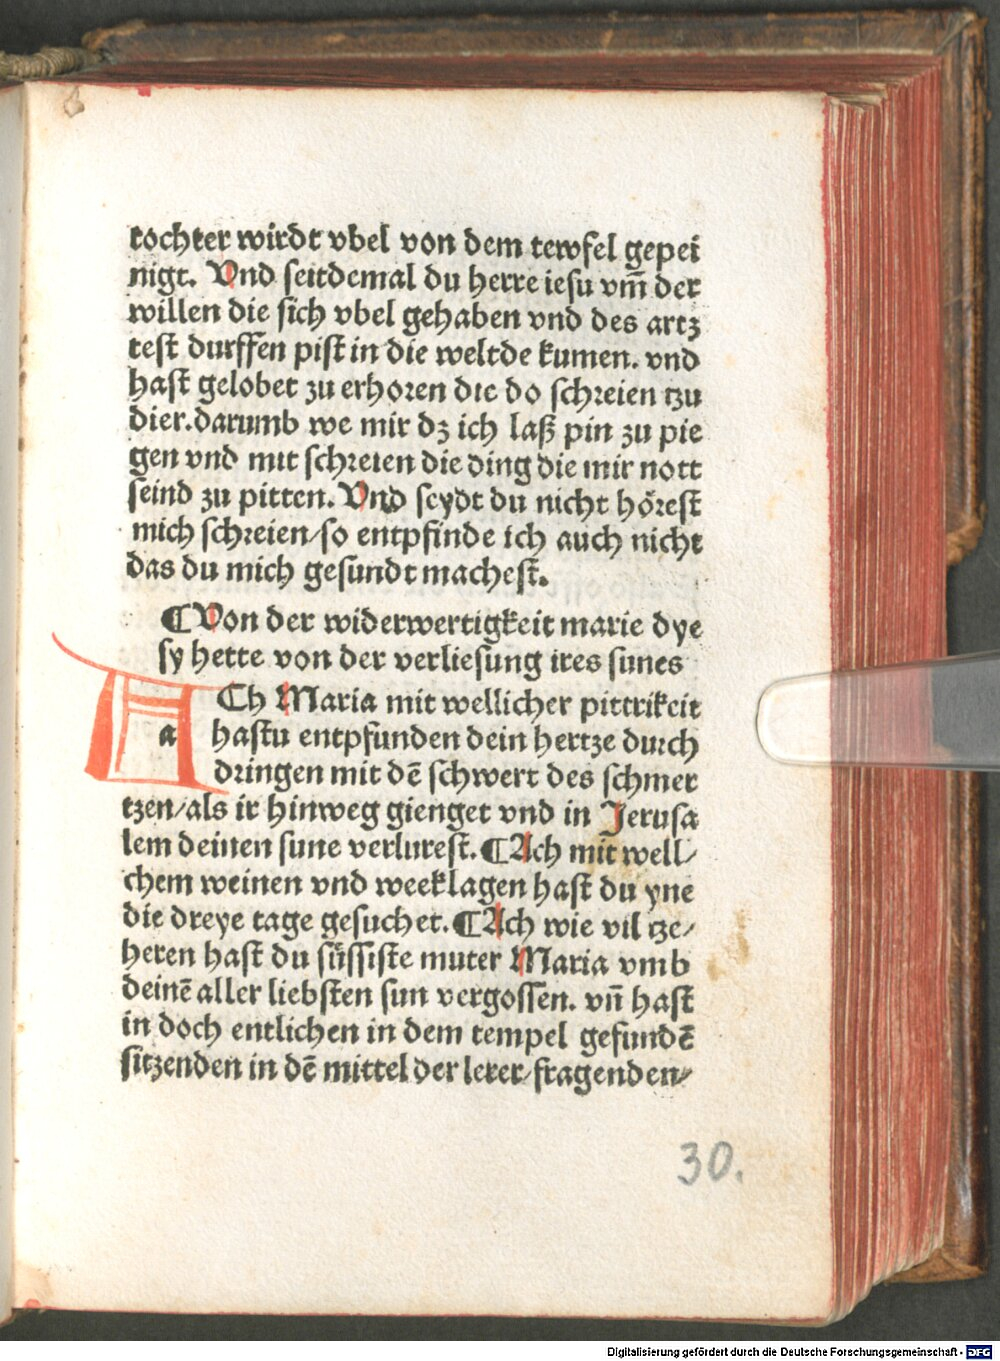 tochter wirdt vbel von dem tewfel gepei
nigt. Vnd seitdemal du herre iesu vm̄ der
willen die sich vbel gehaben vnd des artz
test durffen pist in die weltde kumen. vnd
hast gelobet zu erhoren die do schreien tzu
dier. darumb we mir dz ich laß pin zu pie
gen vnd mit schreien die ding die mir nott
seind zu pitten. Vnd seydt du nicht hörest
mich schreien/so entpfinde ich auch nicht
das du mich gesundt machest.
¶Von der widerwertigkeit marie dye
sy hette von der verliesung ires sunes
ACh Maria mit wellicher pittrikeit
a hastu entpfunden dein hertze durch
dringen mit dē schwert des schmer
tzen/als ir hinweg gienget vnd in Jerusa
lem deinen sune verlurest. ¶Ach mit well/
chem weinen vnd weeklagen hast du yne
die dreye tage gesuchet. ¶Ach wie vil tze/
heren hast du süssiste muter Maria vmb
deinē aller liebsten sun vergossen. vn̄ hast
in doch entlichen in dem tempel gefundē
sitzenden in dē mittel der lerer/fragenden/
30.
Digitalisierung gefördert durch die Deutsche Forschungsgemeinschaft - DFG